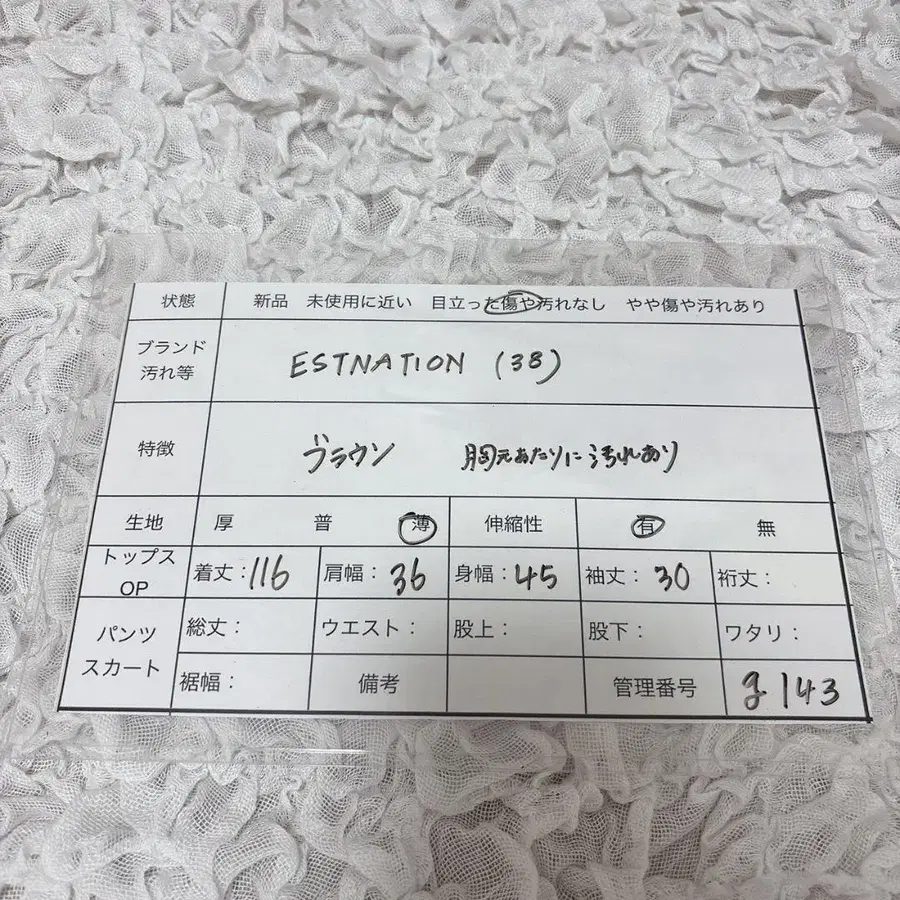 状態 新品 未使用に近い 目立った傷や汚れなし やや傷や汚れあり
ブランド
汚れ等
ESTNATION (38)
特徴 ブラウン 胸元あたりに汚れあり
生地 厚 普 薄 伸縮性 有 無
トップス
OP
着丈:116 肩幅:36 身幅:45 袖丈:30 裄丈:
パンツ
スカート
総丈: ウエスト: 股上: 股下: ワタリ:
裾幅: 備考 管理番号 g143